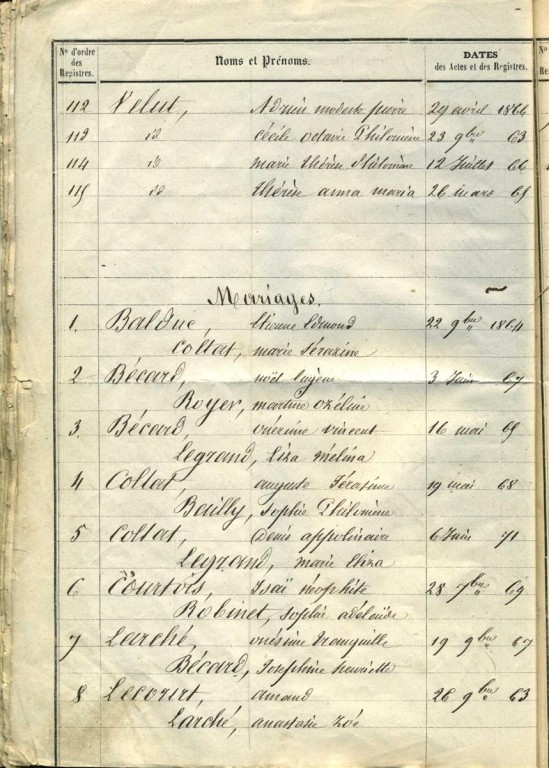 Nos d'ordre des Registres.
Noms et Prénoms.
DATES des Actes et des Registres.
112 Velut, Adrien modeste pierre 29 avril 1866
113 id cécile octavie Philomène 23 9bre 63
114 id marie thérèse Philomène 12 Juillet 66
115 id thérèse anna maria 26 mars 69
Mariages.
1. Balduc, Etienne Edmond 22 9bre 1864
Collat, marie Sérazine
2 Bécard, noël 3 Juin 67
Royer, martine ozéline
3. Bécard, vincent 16 mai 69
Legrand, Liza mélina
4 Collat, auguste 19 mai 68
Bailly, Sophie Philomène
5 Collat, Denis appolinaire 6 Juin 71
Legrand, marie Eliza
6 Courtois, Isaï 28 7bre 69
Robinet, Sophie adélaïde
7 Larché, tranquille 19 9bre 67
Bécard, Joséphine henriette
8 Lecourt, amand 26 9bre 63
Larché, anastasie zoé